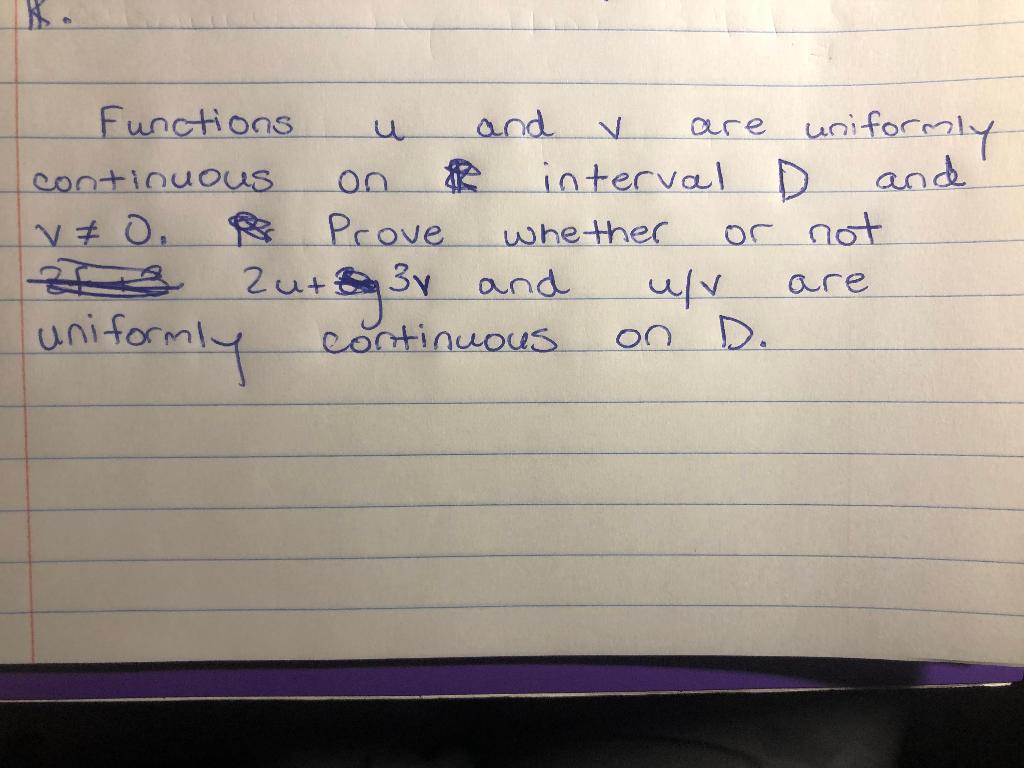 Functions u and v are uniformly
continuous on interval D and
v ≠ 0. Prove whether or not
2u+ 3v and u/v are
uniformly continuous on D.